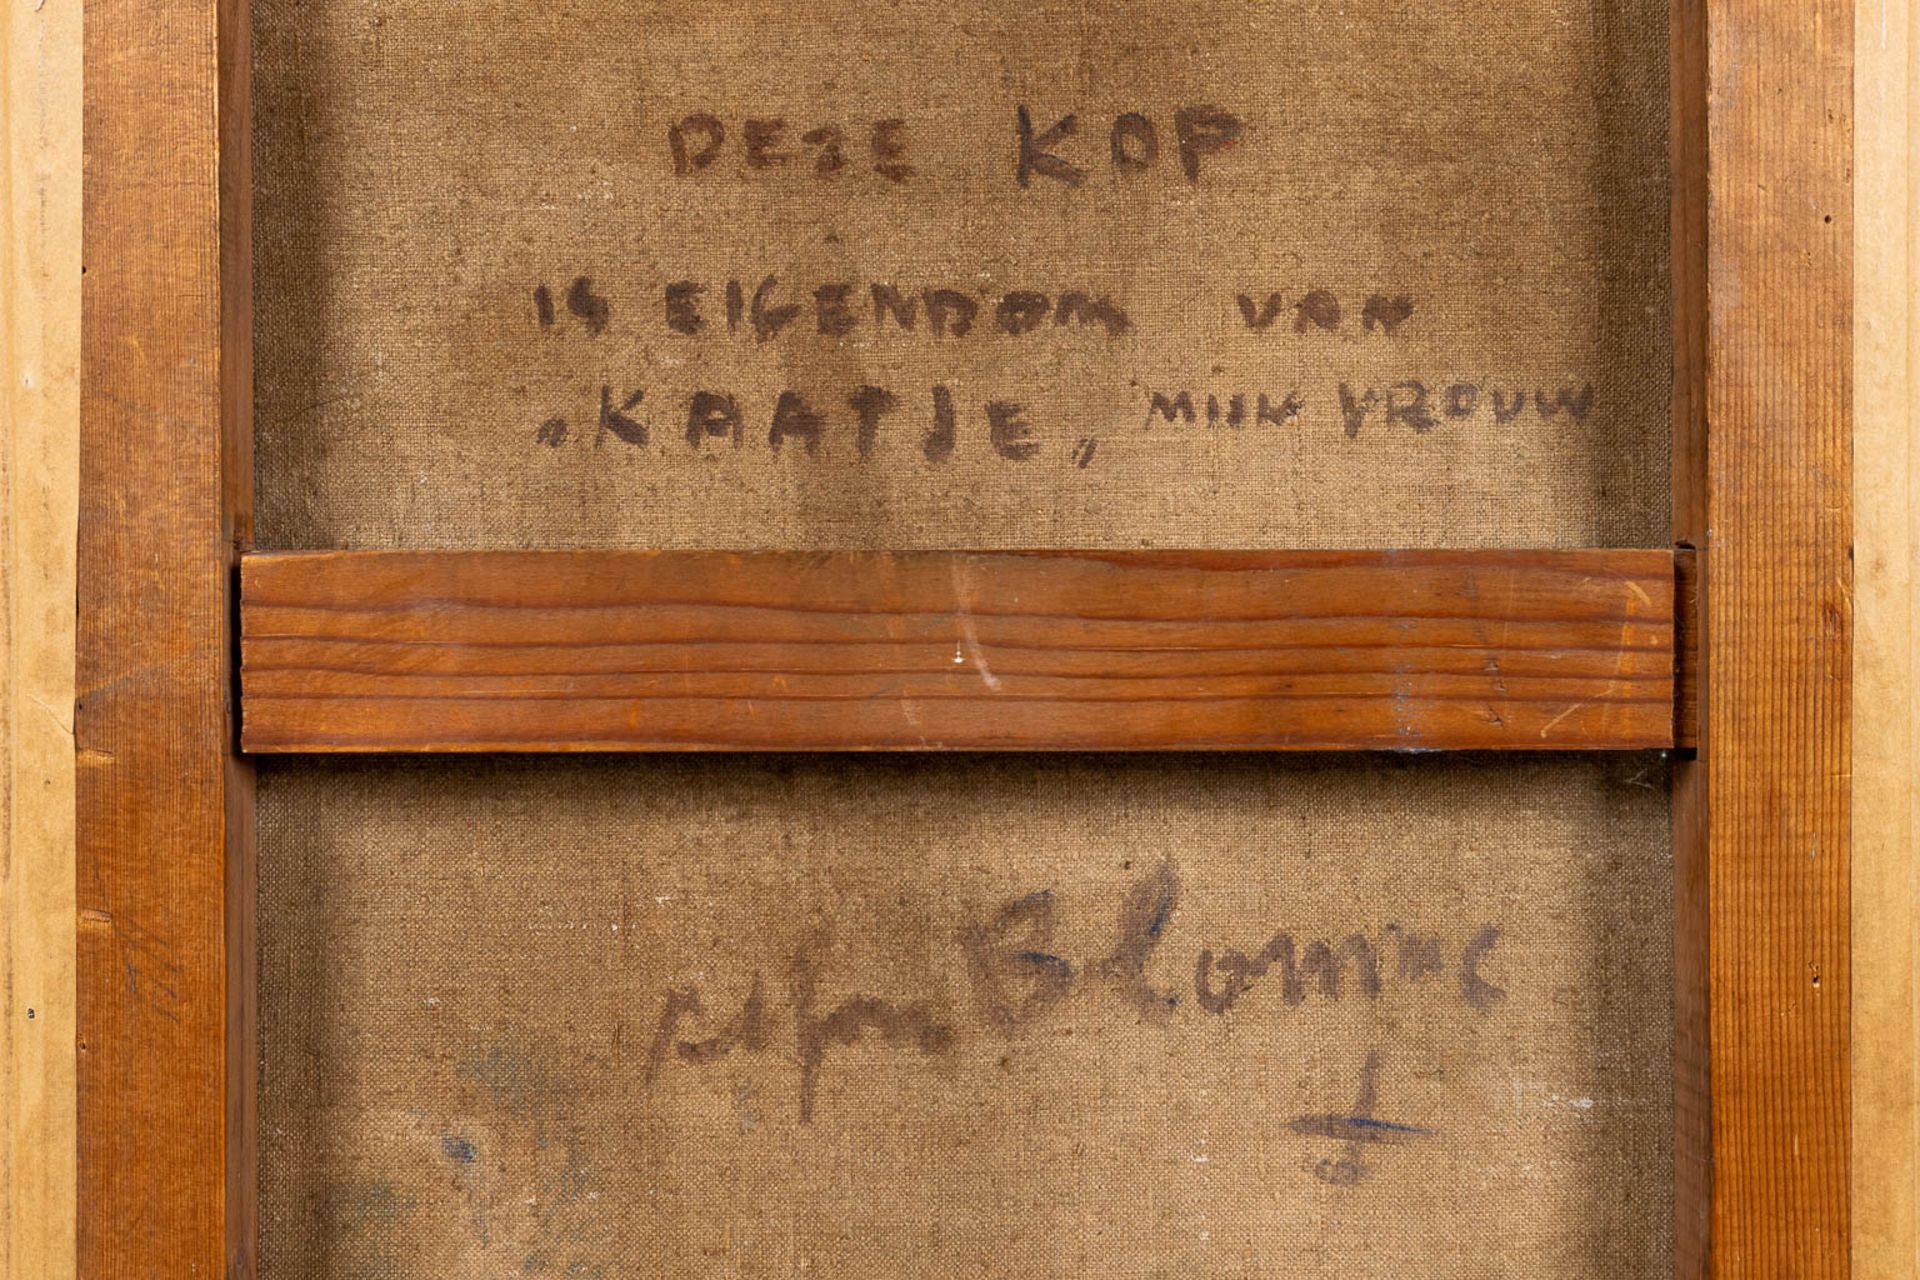 DEZE KOP
IS EIGENDOM VAN
„KAATJE„ MIJN VROUW
Blomme